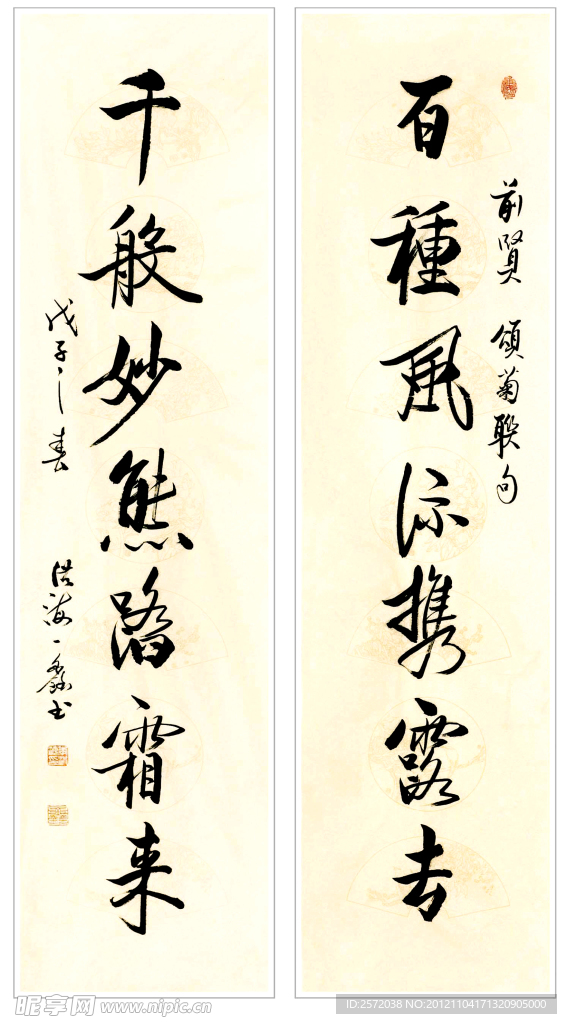 前賢 頌菊聯句
百種風流携露去
千般妙態蹈霜来
戊子之春 洪海
昵享网 www.nipic.cn
ID:2572038 NO:20121104171320905000